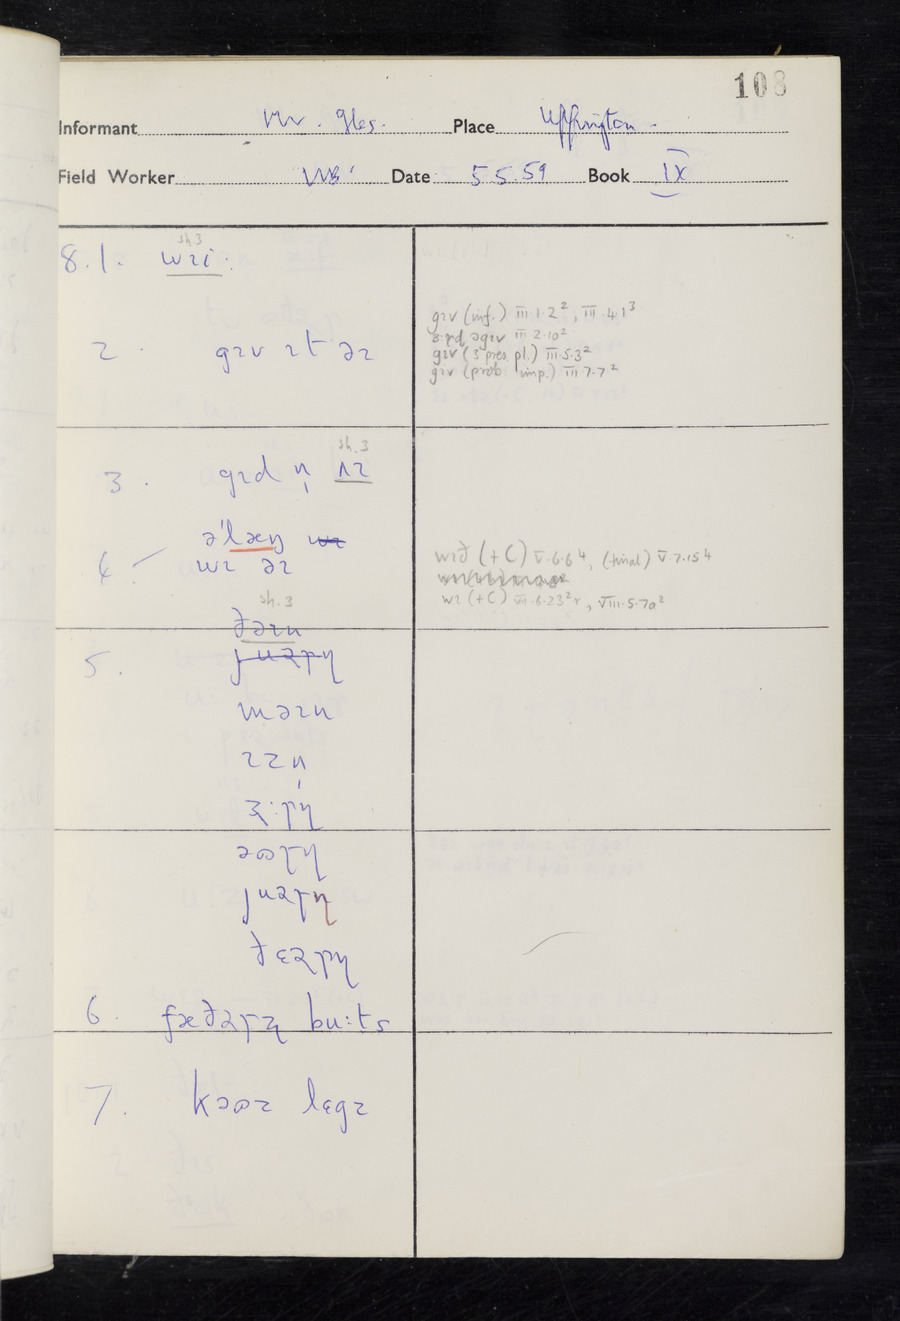 108
Informant Place Uffington.
Field Worker Date 5 5.59 Book IX
sh.3
8.1. wɪi
2. gɪv ɪt əɪ
gɪv (inf.) III.1.2², III.4.1³
əgɪv III 2.10²
gɪv (3 pres. pl.) III.5.3²
gɪv (prob. imp.) III 7.7²
sh.3
3. gɪd n̩ ʌɪ
əˈlæŋ
4 wɪ əɪ
wɪð (+C) V.6.6⁴, (final) V.7.15⁴
wɪ (+C) VII.6.23²r, VIII.5.7a²
sh.3
ðəɪn
5. juəɽɳ
məɪn
ɪzn̩
ɜ:ɽɳ
əʊɽɳ
juəɽɳ
ðɛəɽɳ
6. fæðəɽʐ bu:ts
7. kəʊɪ lɛgɪ